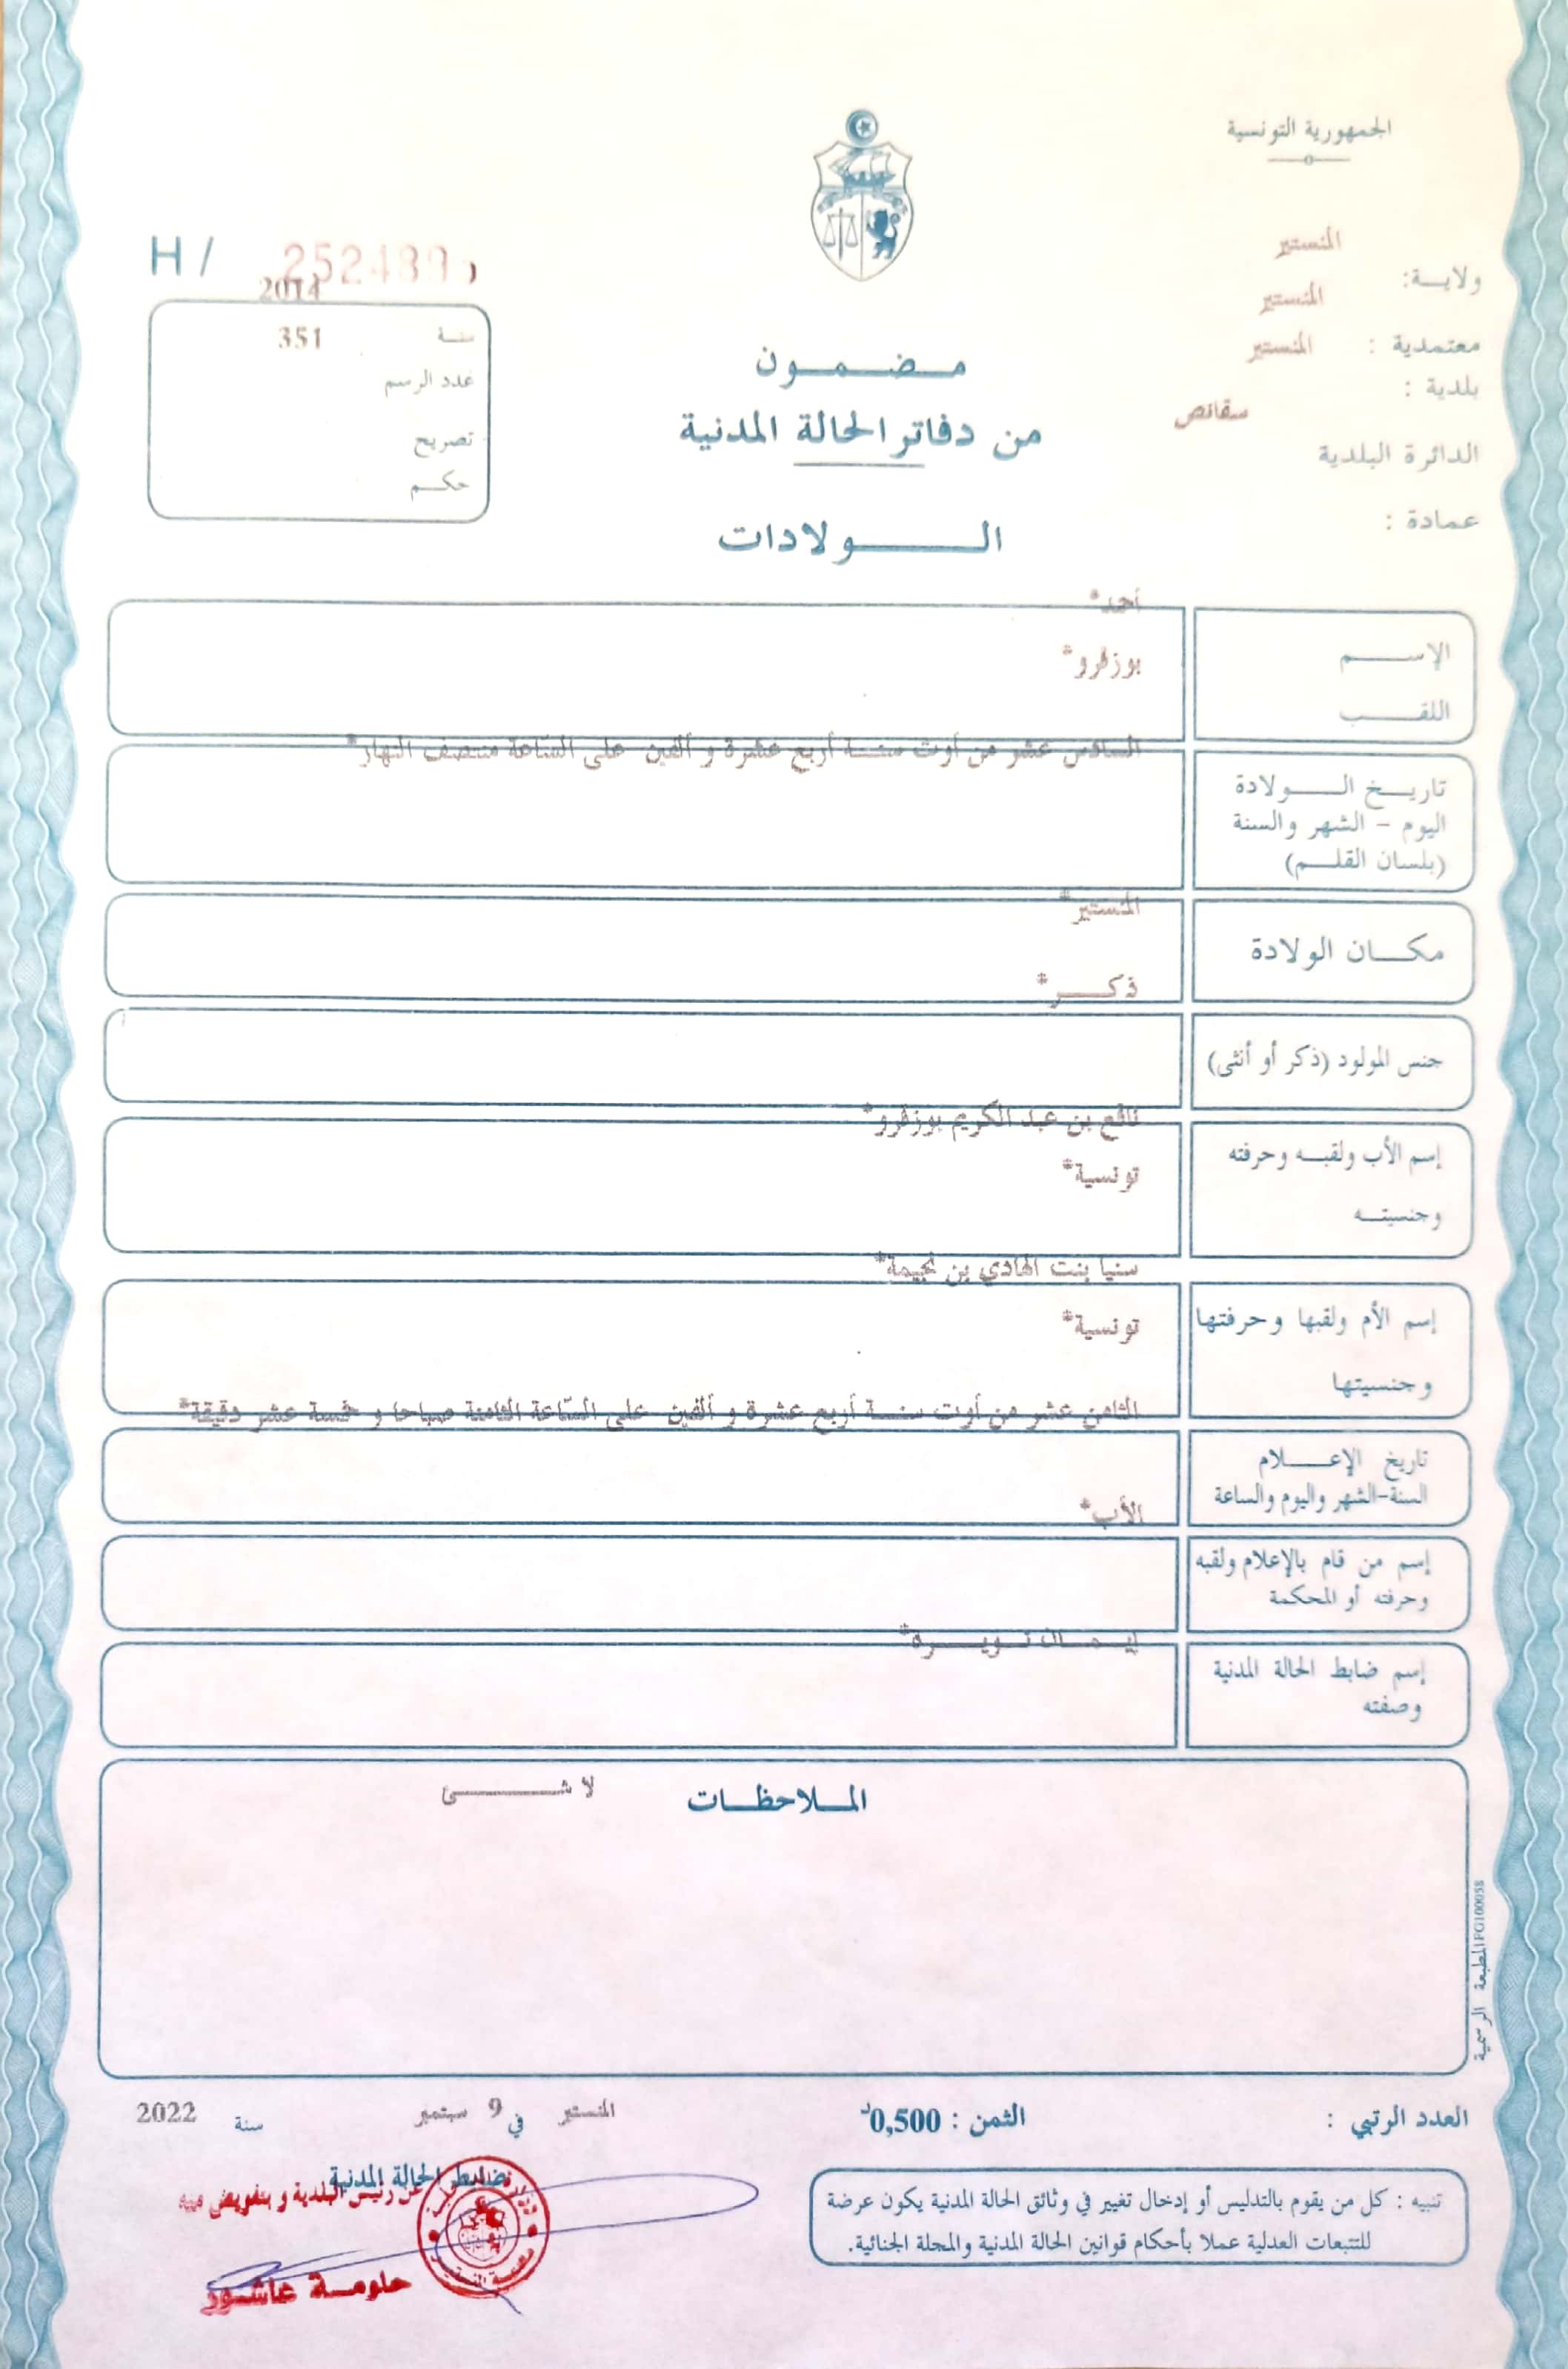 الجمهورية التونسية
المنستير
ولاية:
المنستير
معتمدية : المنستير
بلدية :
سقانص
الدائرة البلدية
عمادة :
H/
2014
سنة 351
عدد الرسم
تصريح
حكم
مضمون
من دفاتر الحالة المدنية
الولادات
أحمد*
الإسم
بوزفرو*
اللقب
السادس عشر من أوت سنة أربع عشرة و ألفين على الساعة منتصف النهار*
تاريخ الولادة
اليوم - الشهر والسنة
(بلسان القلم)
المنستير*
مكان الولادة
ذكر*
جنس المولود (ذكر أو أنثى)
نافع بن عبد الكريم بوزفرو*
إسم الأب ولقبه وحرفته
تونسية*
وجنسيته
سنيا بنت الهادي بن نجيمة*
إسم الأم ولقبها وحرفتها
تونسية*
وجنسيتها
الثامن عشر من أوت سنة أربع عشرة و ألفين على الساعة الثامنة صباحا و خمسة عشر دقيقة*
تاريخ الإعلام
السنة-الشهر واليوم والساعة
الأب*
إسم من قام بالإعلام ولقبه
وحرفته أو المحكمة
إسم ضابط الحالة المدنية
وصفته
الملاحظات
لا شئ
المطبعة الرسمية FG100058
العدد الرتبي :
الثمن : 0,500د
المنستير في 9 سبتمبر سنة 2022
ضابط الحالة المدنية
عن رئيس البلدية و بتفويض منه
حلومة عاشور
تنبيه : كل من يقوم بالتدليس أو إدخال تغيير في وثائق الحالة المدنية يكون عرضة
للتتبعات العدلية عملا بأحكام قوانين الحالة المدنية والمجلة الجنائية.